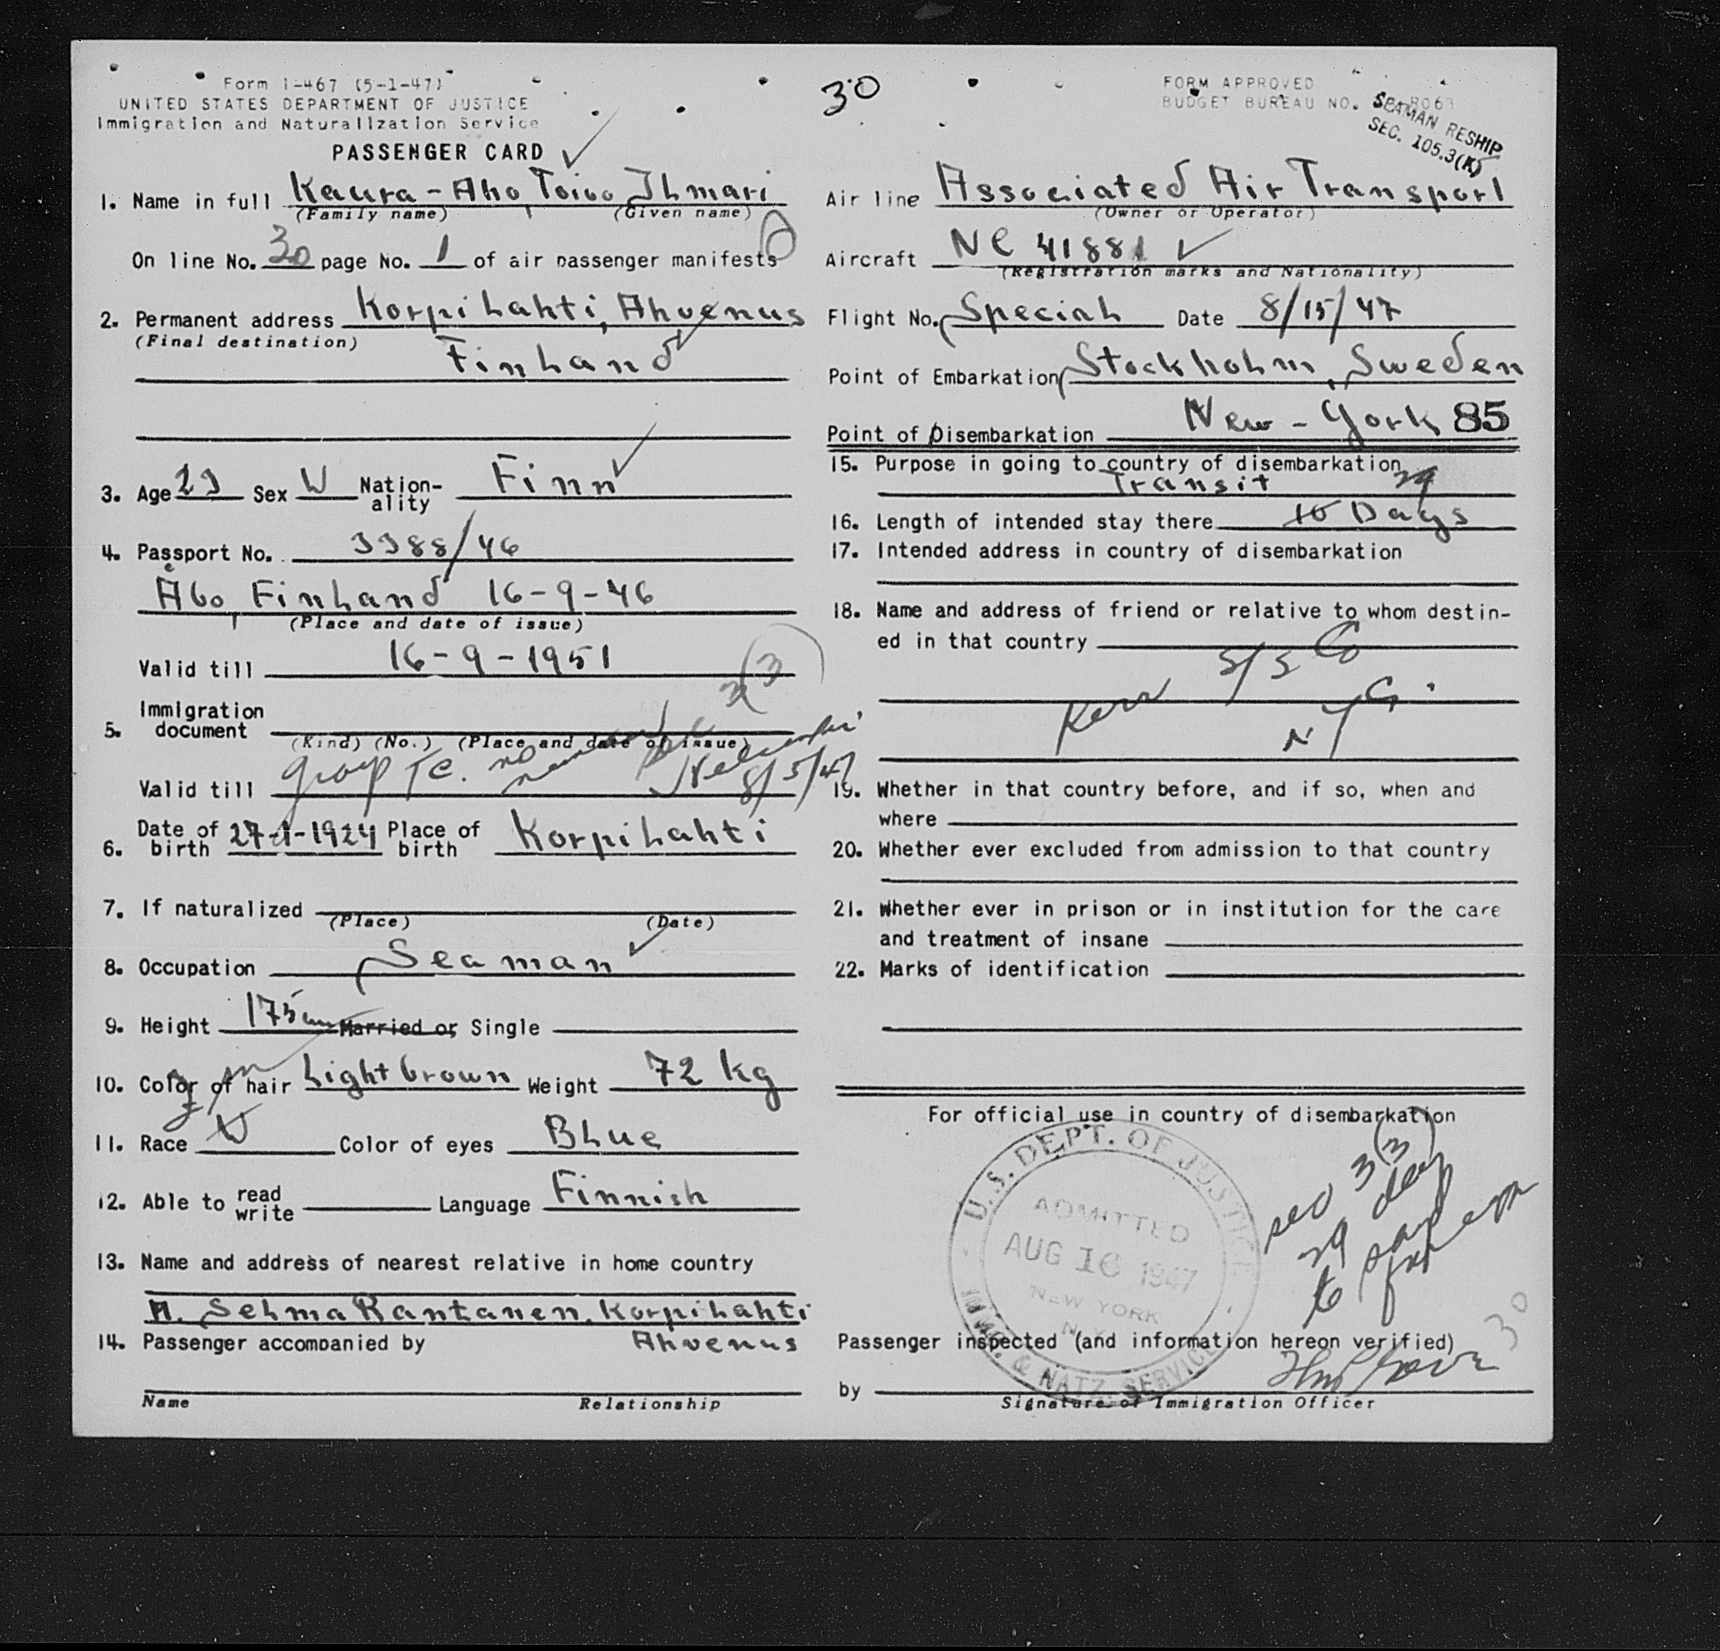 Form I-467 (5-1-47)
UNITED STATES DEPARTMENT OF JUSTICE
Immigration and Naturalization Service
PASSENGER CARD
30
FORM APPROVED
BUDGET BUREAU NO.
SEAMAN RESHIP
SEC. 105.3(K)
1. Name in full Kaura-Aho, Toivo Ilmari
(Family name) (Given name)
On line No. 30 page No. 1 of air passenger manifests
2. Permanent address Korpilahti, Ahvenus
(Final destination)
Finland
3. Age 23 Sex W Nationality Finn
4. Passport No. 3388/46
Åbo, Finland 16-9-46
(Place and date of issue)
Valid till 16-9-1951
3(3)
5. Immigration document
(Kind) (No.) (Place and date of issue)
group TC. no
Helsinki
Valid till
8/5/47
6. Date of birth 27-1-1924 Place of birth Korpilahti
7. If naturalized
(Place) (Date)
8. Occupation Seaman
9. Height 175 cm Married or Single
10. Color of hair Light brown Weight 72 kg
11. Race W Color of eyes Blue
12. Able to read write Language Finnish
13. Name and address of nearest relative in home country
A. Selma Rantanen, Korpilahti
Ahvenus
14. Passenger accompanied by
Name Relationship
Air line Associated Air Transport
(Owner or Operator)
Aircraft NC 41881
(Registration marks and Nationality)
Flight No. Special Date 8/15/47
Point of Embarkation Stockholm, Sweden
Point of Disembarkation New-York 85
15. Purpose in going to country of disembarkation
Transit
29
16. Length of intended stay there 10 Days
17. Intended address in country of disembarkation
18. Name and address of friend or relative to whom destined in that country
Kerr S/S Co
N Y C.
19. Whether in that country before, and if so, when and
where
20. Whether ever excluded from admission to that country
21. Whether ever in prison or in institution for the care
and treatment of insane
22. Marks of identification
For official use in country of disembarkation
U.S. DEPT. OF JUSTICE
ADMITTED
AUG 16 1947
NEW YORK
N.Y.
IMMIG. & NATZ. SERVICE
sec 3(3)
29 days
to
30
Passenger inspected (and information hereon verified)
by
Signature of Immigration Officer